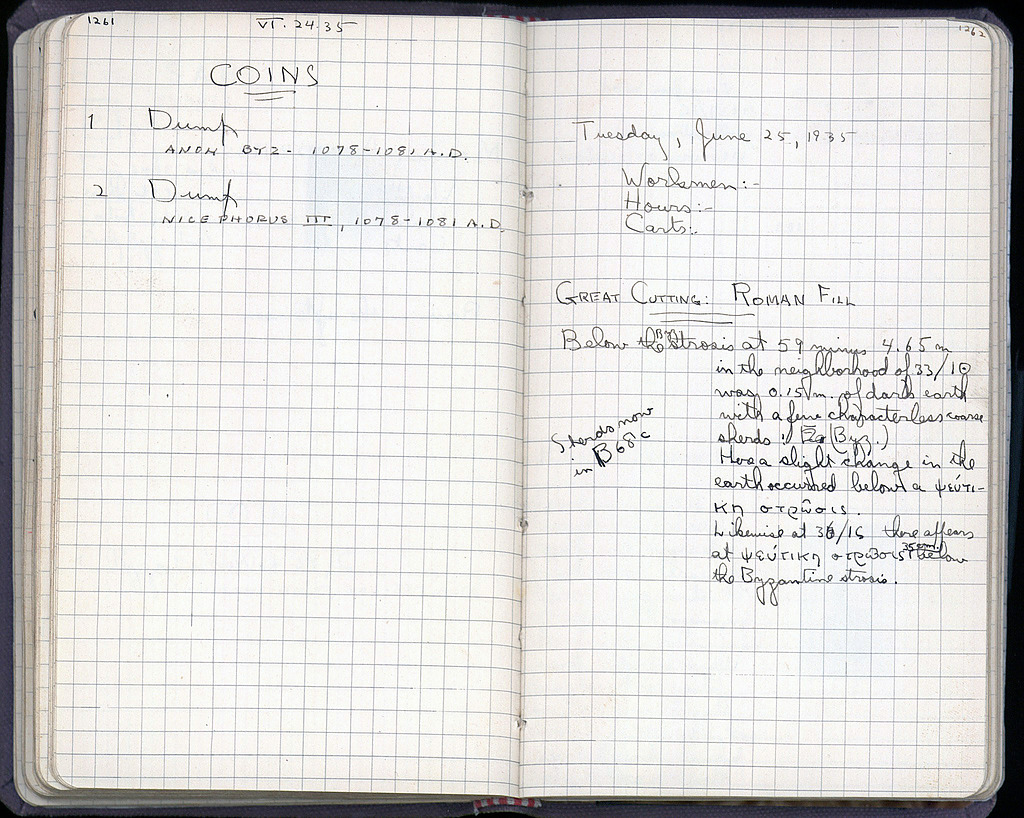 1261
VI. 24.35
COINS
1 Dump
ANON BYZ - 1078-1081 A.D.
2 Dump
NICEPHORUS III, 1078-1081 A.D.
1262
Tuesday, June 25, 1935
Workmen:-
Hours:-
Carts:.
GREAT CUTTING: ROMAN FILL
Below the Byz strosis at 59 minus 4.65 m
in the neighborhood of 33/
was 0.15 m. of dark earth
with a few characterless coarse
sherds (Byz.)
Sherds now
in B68c
slight change in the
earth occurred below a ψεύτι-
κη στρῶσις.
Likewise at there appears
at ψεύτικη στρῶσις 35 cm. below
the Byzantine strosis.